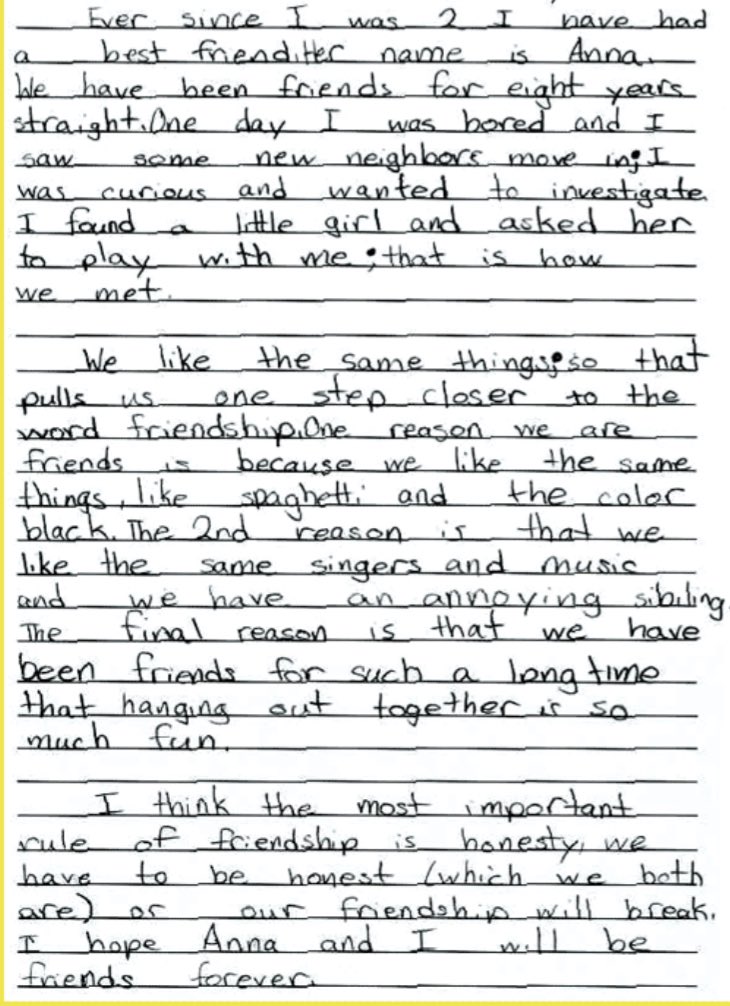 Ever since I was 2 I have had
a best friend. Her name is Anna.
We have been friends for eight years
straight. One day I was bored and I
saw some new neighbors move in; I
was curious and wanted to investigate.
I found a little girl and asked her
to play with me; that is how
we met.
We like the same things; so that
pulls us one step closer to the
word friendship. One reason we are
friends is because we like the same
things, like spaghetti and the color
black. The 2nd reason is that we
like the same singers and music
and we have an annoying sibiling.
The final reason is that we have
been friends for such a long time
that hanging out together is so
much fun.
I think the most important
rule of friendship is honesty, we
have to be honest (which we both
are) or our friendship will break.
I hope Anna and I will be
friends forever.